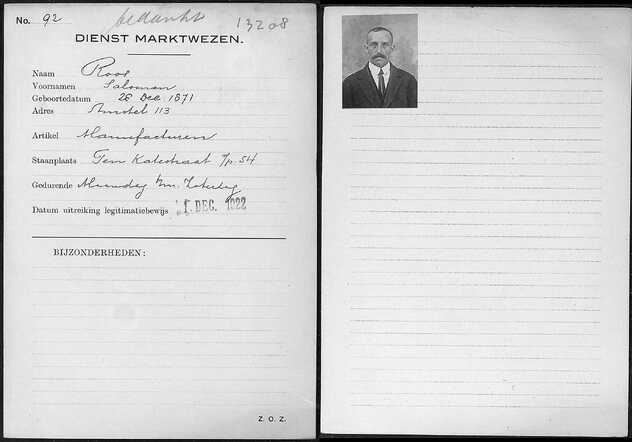 No. 92 bedankt 13208
DIENST MARKTWEZEN.
Naam Roos
Voornamen Salomon
Geboortedatum 28 Dec. 1871
Adres Amstel 113
Artikel Manufacturen
Staanplaats Ten Katestraat 54
Gedurende Maandag t/m. Zaterdag
Datum uitreiking legitimatiebewijs 1 DEC. 1922
BIJZONDERHEDEN:
Z. O. Z.